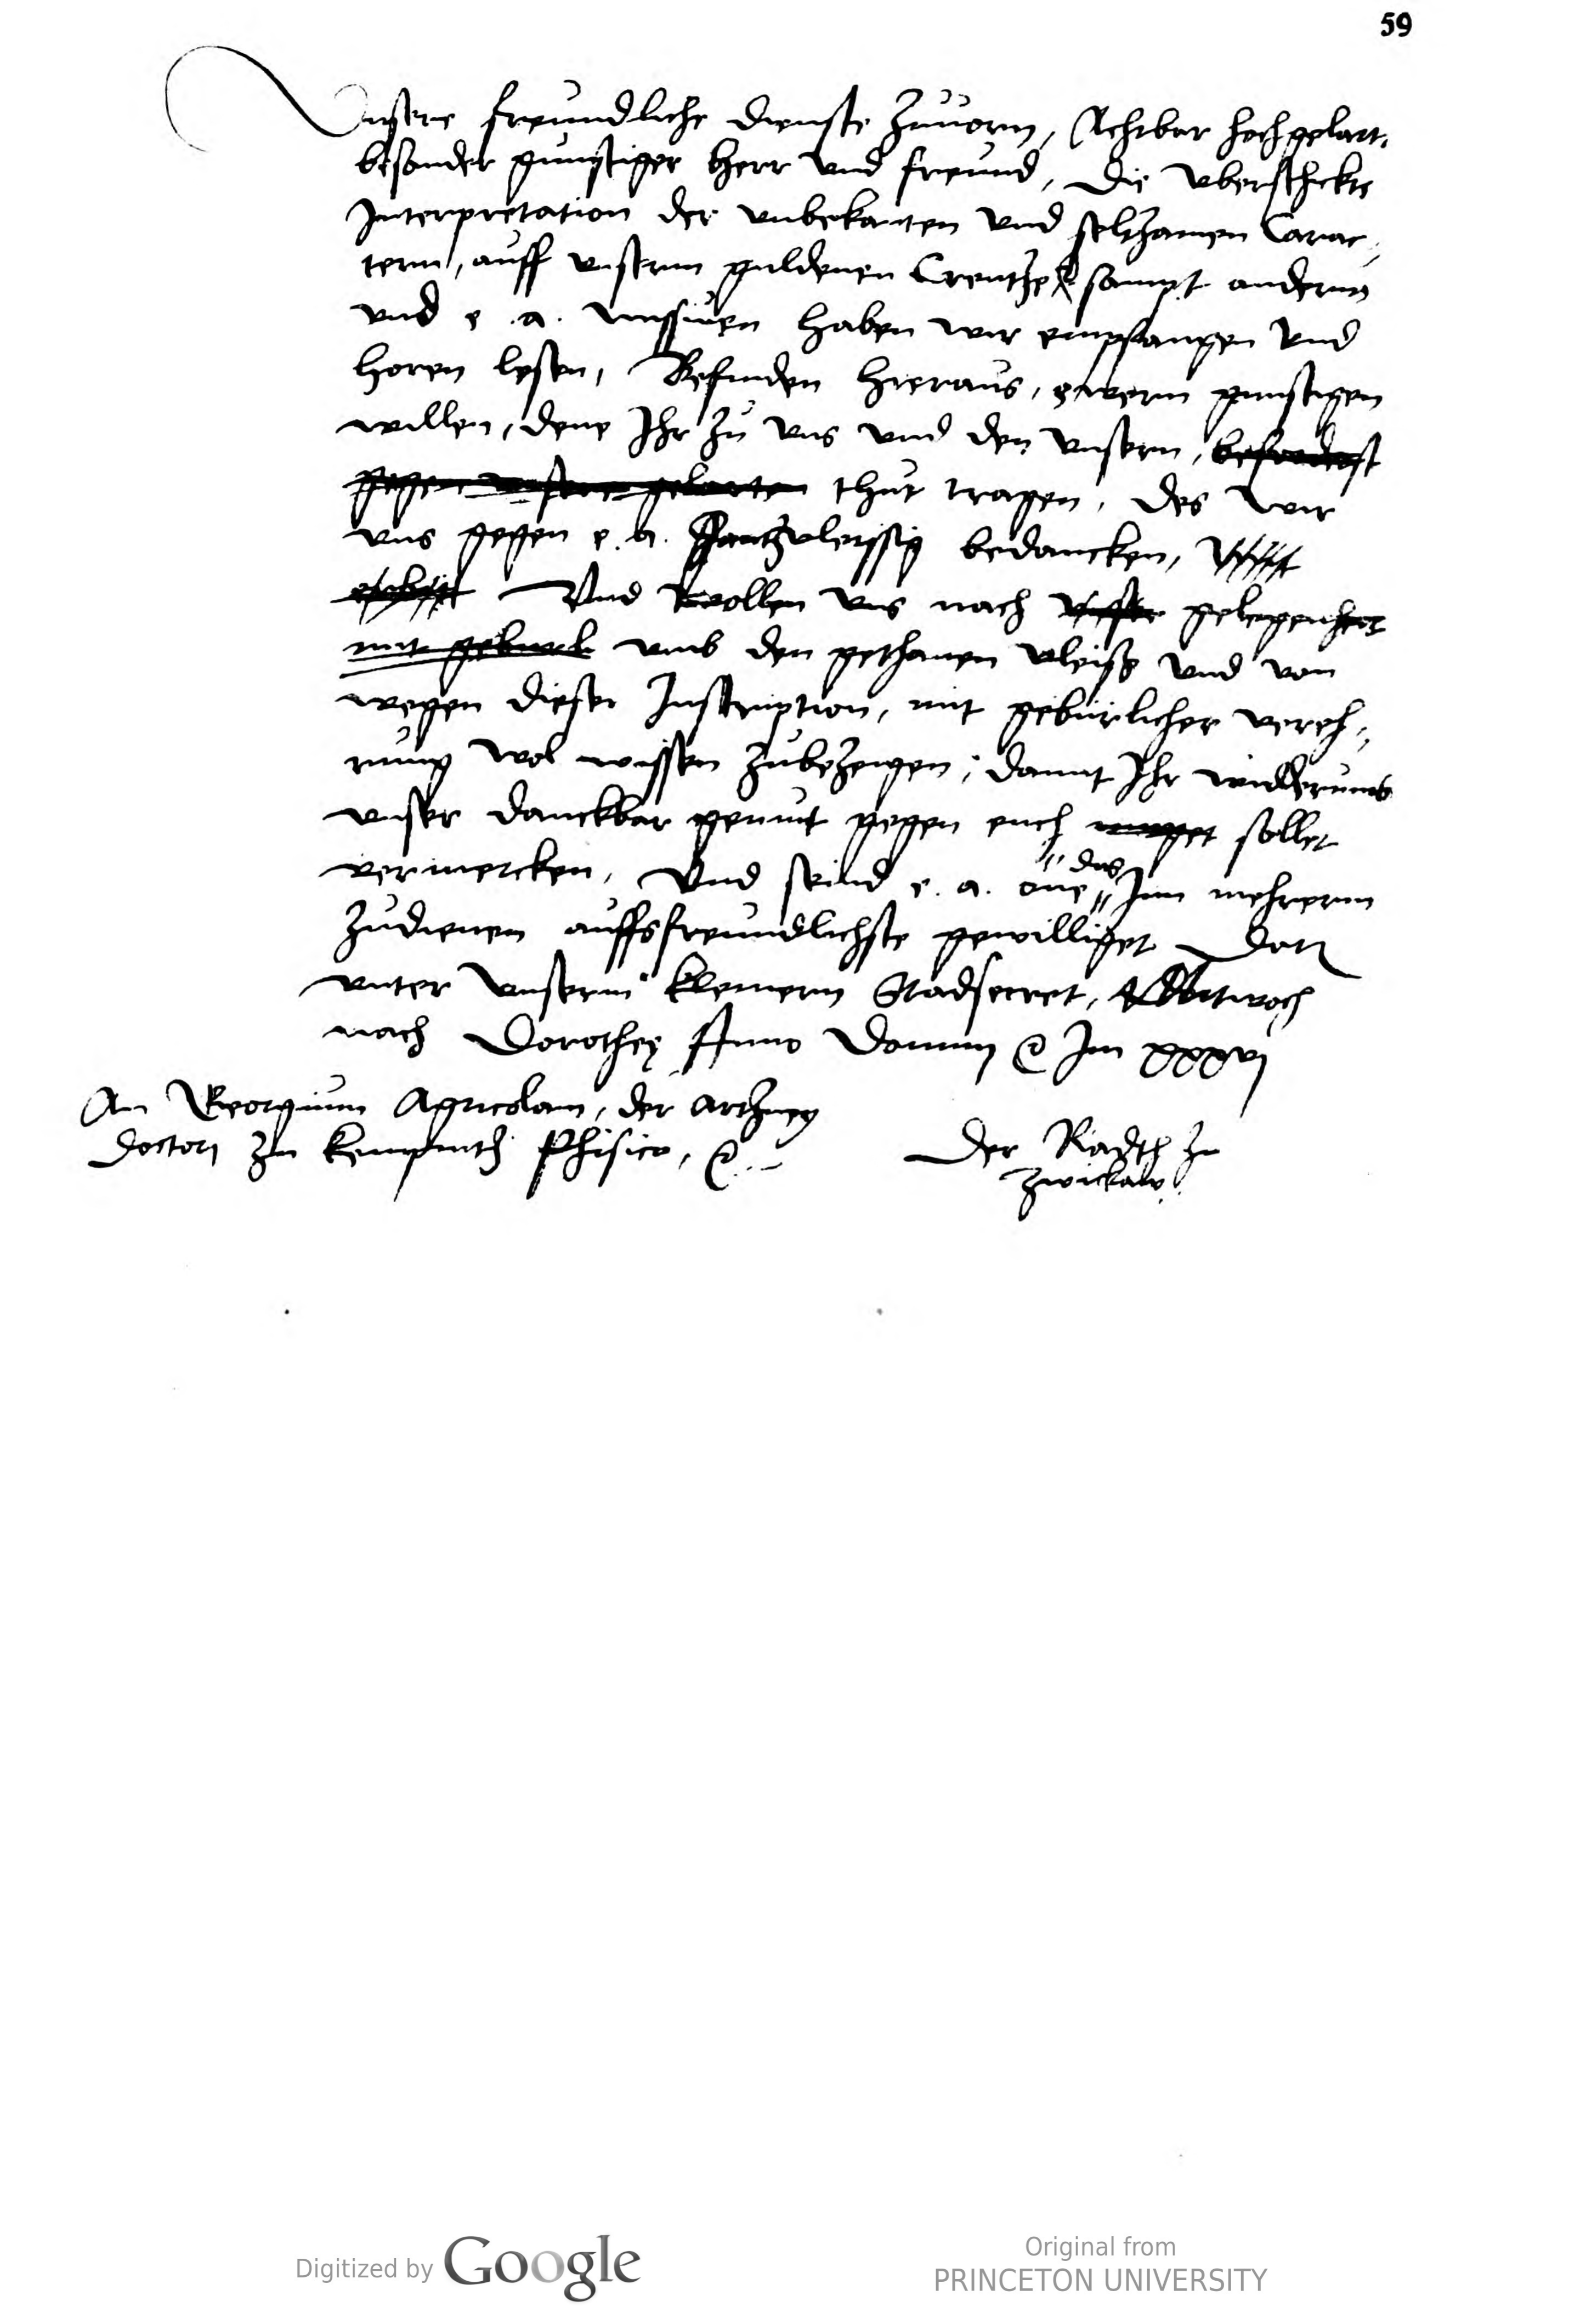 59
Vnsere freundliche dienste zuuorn, Achtbar hochgelart.
besonder gunstiger Herr vnd freund, Die vberschickte
Interpretation der vnbekanten vnd seltzamen Carac,,
tern, auff vnserm guldenen Creutze sampt anderm
vnd e. a. missiuen haben wir empfangen vnd
horen lesen, Befinden hieraus, ewern gunstigen
willen, dene Ihr zu vns vnd den vnsern,
gegen vnsere gelarten thut tragen, Des wir
vns gegen e. a. gantzvleissig bedancken,
Vnd wollen vns nach gelegenheit
mit vmb den gethanen vleiss vnd von
wegen dieser Inscription, mit geburlicher vereh,,
rung wol wissen zubezeigen, damit Ihr widderumb
vnser danckbar gemut gegen euch muget sollet
vermercken, Vnd seind e. a. one das Inn mehrerm
zudienen auffsfreundlichste gewilliget Dat
vnter vnserm kleinern Stadsecret, Mitwoch
nach Dorothee Anno Domini Im xxxxvj
An Georgium Agricolam, der artzney
Doctorj zu Kempnitz Phisico,
Der Radth zu
Zwickaw
Digitized by Google
Original from
PRINCETON UNIVERSITY